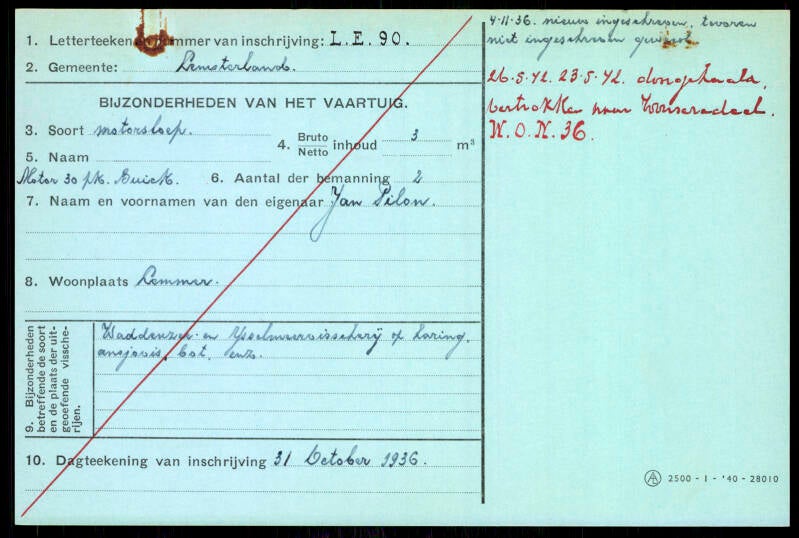 1. Letterteeken en nummer van inschrijving: L.E. 90.
2. Gemeente: Lemsterland.
BIJZONDERHEDEN VAN HET VAARTUIG.
3. Soort motorsloep.
4. Bruto Netto inhoud 3 m³
5. Naam
Motor 30 pk. Buick.
6. Aantal der bemanning 2
7. Naam en voornamen van den eigenaar Jan Pilon.
8. Woonplaats Lemmer.
9. Bijzonderheden
betreffende de soort
en de plaats der uit-
geoefende vissche-
rijen.
Waddenzee en IJsselmeervisscherij op haring,
ansjovis, bot, enz.
10. Dagteekening van inschrijving 31 October 1936.
4-11-36. nieuw ingeschreven, tevoren
niet ingeschreven geweest.
26.5.42. 23.5.42. doorgehaald,
vertrokken naar Wonseradeel.
W.O.N. 36.
2500 - 1 - '40 - 28010